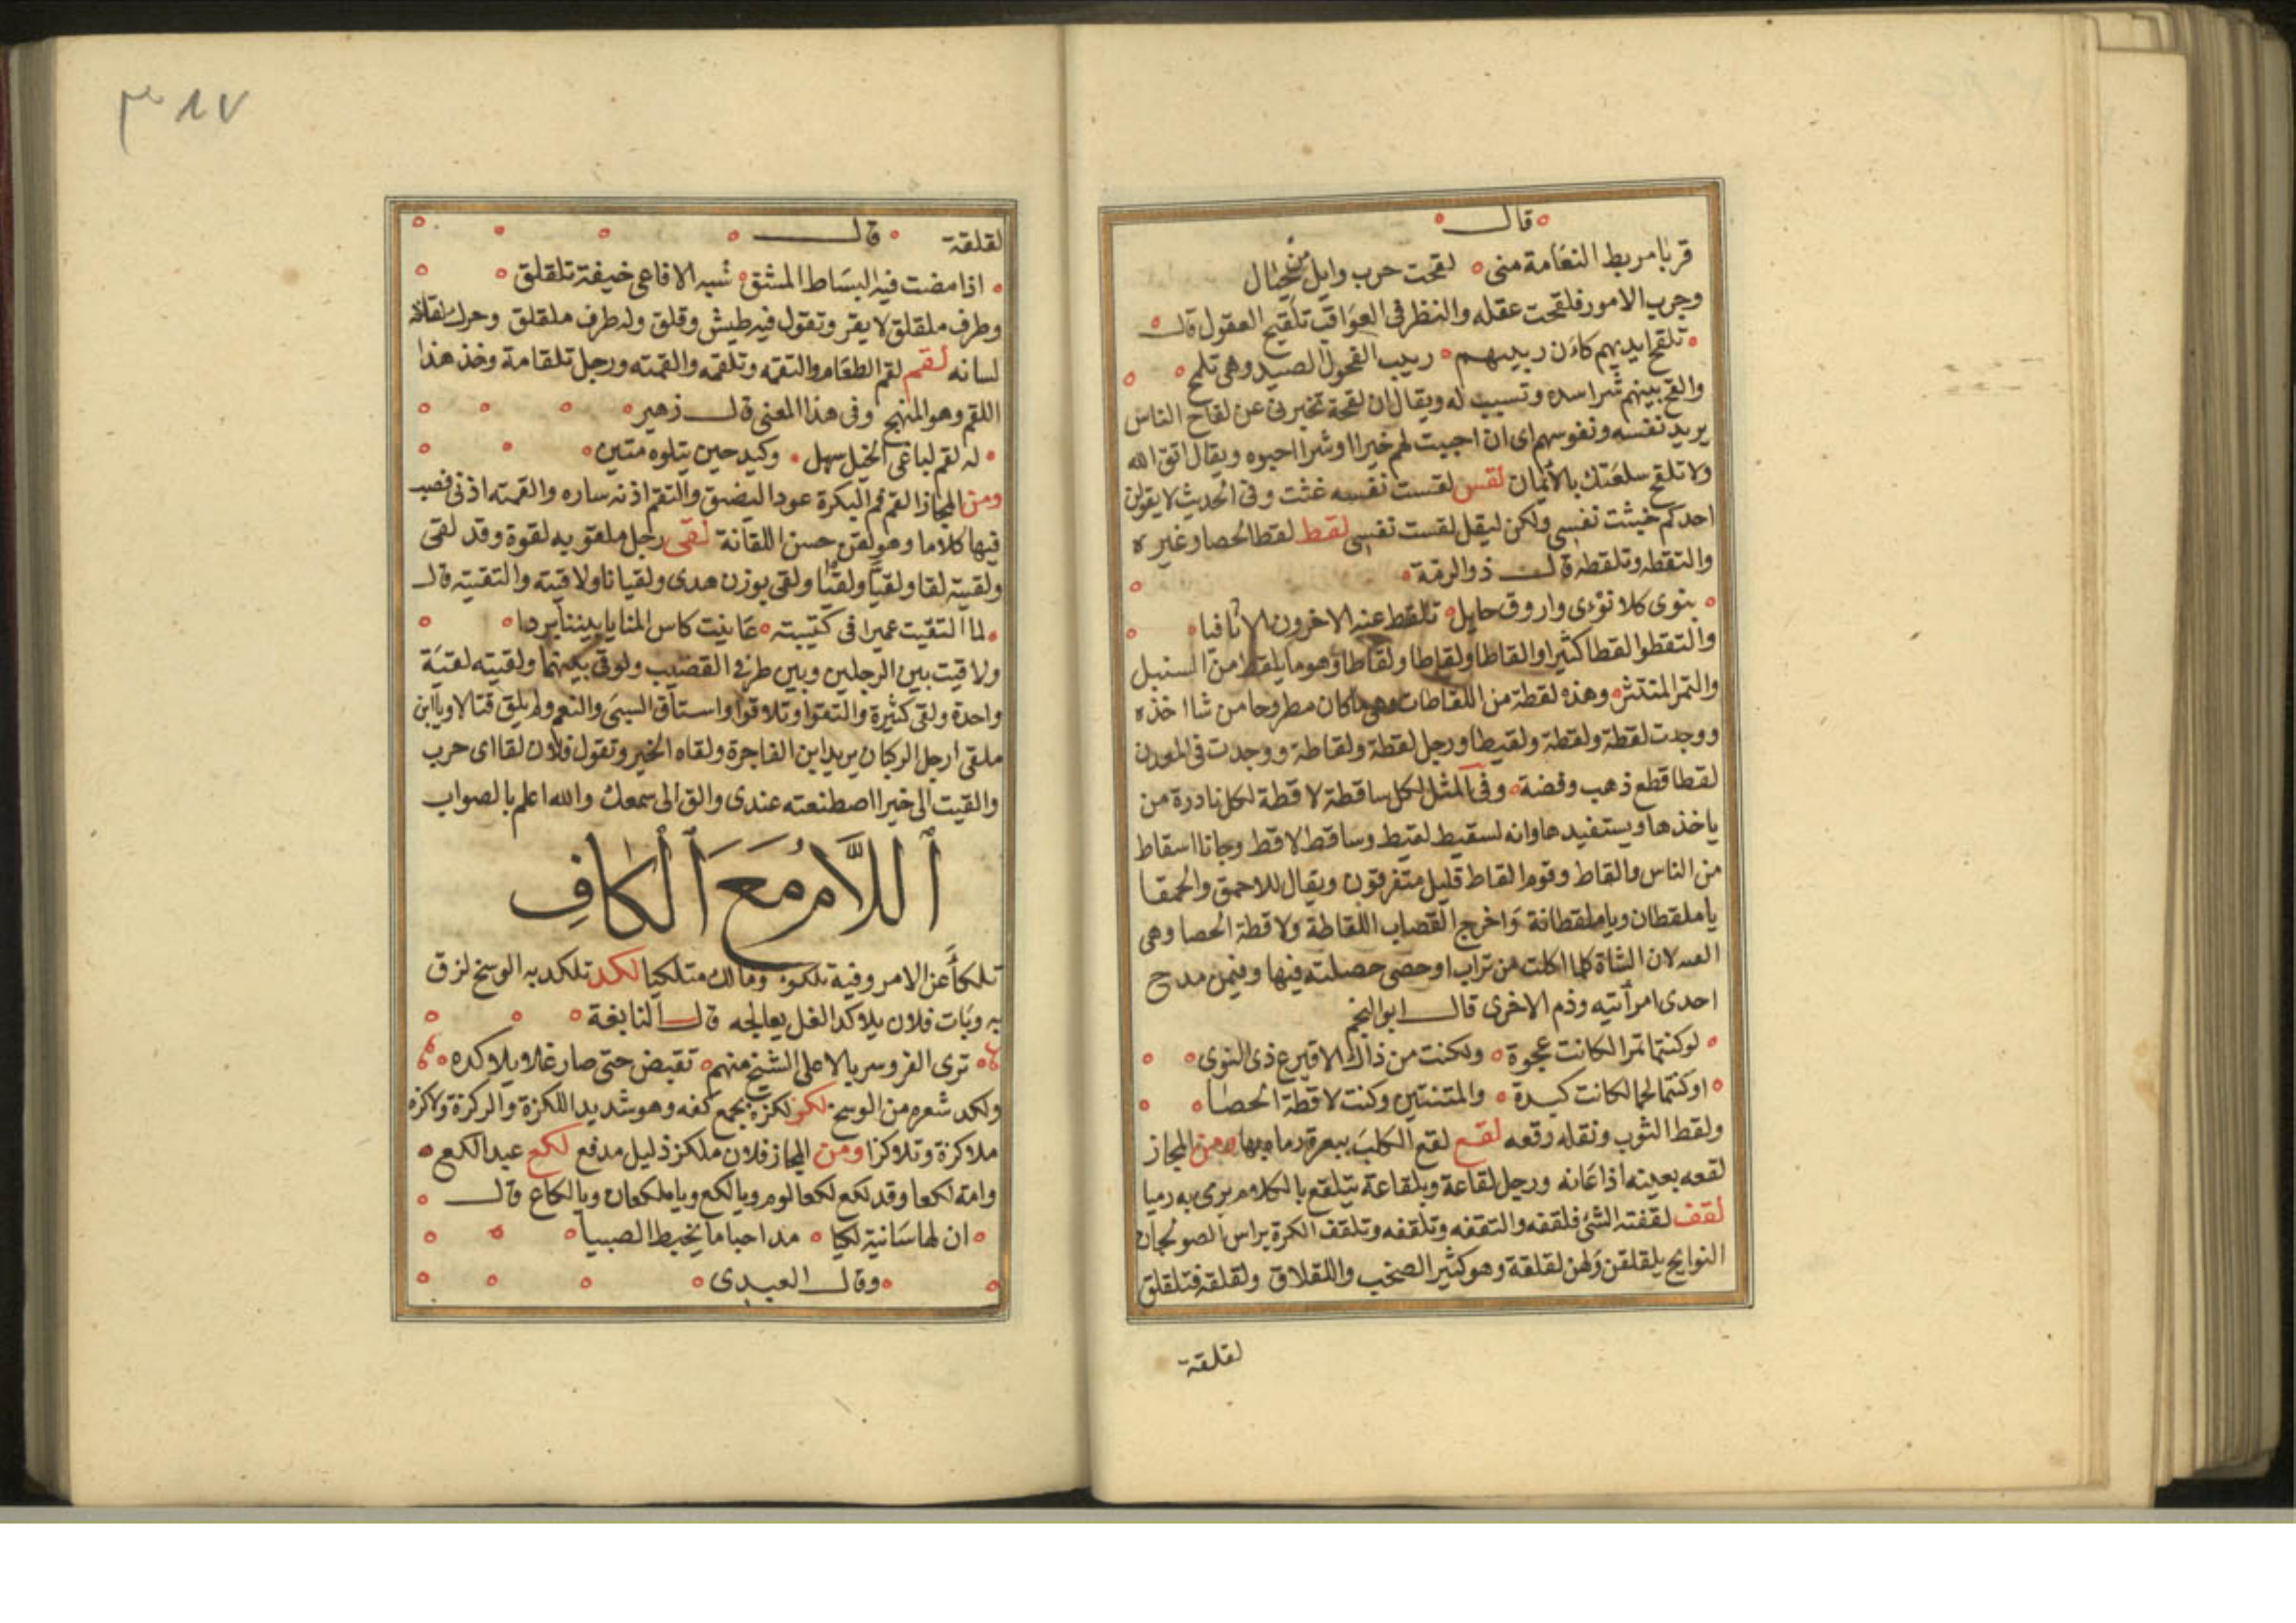 قال
قربا مربط النعامة منى لقحت حرب وايل من حيال
وجرب الامور فلقحت عقله والنظر فى العواقب تلقيح العقول قال
تلقح ايديهم كان ربيبهم ربيب الفحول الصيد وهى تلمح
والقح بينهم شرا سده وتسبب له ويقال ان لقحة تخبرنى عن لقاح الناس
يريد نفسه ونفوسهم اى ان احببت لهم خيرا او شرا احبوه ويقال اتق الله
ولا تلقح سلعتك بالأيمان لقس لقست نفسه غثت وفى الحديث لا يقولن
احدكم خبثت نفسى ولكن ليقل لقست نفسى لقط لقط الحصا وغيره
والتقطه وتلقطه قال ذو الرمة
بنوى كلا نؤى واروق حايل تلقط عنه الاخرون الاثافيا
والتقطوا لقطا كثيرا والقاطا ولقاطا ولقاطا وهو ما يلقط من السنبل
والتمر المنتثر وهذه لقطة من اللقاطات وهى ما كان مطروحا من شا اخذه
ووجدت لقطة ولقطة ولقيطا ورجل لقطة ولقاطة ووجدت فى المعدن
لقطا قطع ذهب وفضة وفى المثل لكل ساقطة لاقطة لكل نادرة من
ياخذها ويستفيدها وانه لسقيط لقيط وساقط لاقط وجانا اسقاط
من الناس والقاط وقوم القاط قليل متفرقون ويقال للاحمق والحمقا
يا ملقطان ويا ملقطانة واخرج القصاب اللقاطة ولاقطة الحصا وهى
لان الشاة كلما اكلت من تراب او حصى حصلته فيها وفيمن مدح
احدى امرأتيه وذم الاخرى قال ابو النجم
لو كنتما تمرا لكانت عجوة ولكنت من ذاك الاقيرع ذى النوى
او كنتما لحما لكانت كبدة والمتنتين وكنت لاقطة الحصا
ولقط الثوب ونقله رقعه لقع لقع الكلب ببعرة رماه بها ومن المجاز
لقعه بعينه اذا عانه ورجل لقاعة وبلقاعة يتلقع بالكلام يرمى به رميا
لقف لقفته الشئ فلقفه والتقفه وتلقفه وتلقف الكرة براس الصولجان
النوايح يلقلقن ولهن لقلقة وهو كثير الصخب واللقلاق ولقلقه فتلقلق
لقلقة
٣٨٧
لقلقة قال
اذا مضت فيه السباط المشق شبه الافاعى خيفة تلقلق
وطرف ملقلق لا يقر وتقول فيه طيش وقلق وله طرف ملقلق وحرك لقلاقه
لسانه لقم لقم الطعام والتقمه وتلقمه والقمته ورجل تلقامة وخذ هذا
اللقم وهو المنهج وفى هذا المعنى قال زهير
له لقم لباغى الخيل سهل وكيد حين يتلوه متين
ومن المجاز القم فم البكرة عودا ليضيق والتقم اذنه ساره والقمته اذنى فصب
فيها كلاما وهو لقن حسن اللقانة لقى رجل ملقو به لقوة وقد لقى
ولقيته لقا ولقيا ولقيا ولقى بوزن هدى ولقيانا ولاقيته والتقيته قال
لما التقيت عميرا فى كتيبته عاينت كاس المنايا بيننا بردا
ولاقيت بين الرجلين وبين طرفى القضيب ولوقى بينهما ولقيته لقية
واحدة ولقى كثيرة والتقوا وتلاقوا واستاق السبى والنعم ولم يلق قتالا ويا ابن
ملقى ارجل الركبان يريد ابن الفاجرة ولقاه الخير وتقول فلان لقا اى حرب
والقيت الى خيرا اصطنعته عندى والق الى سمعك والله اعلم بالصواب
اَللَّامُ مَعَ اَلْكَافِ
تلكأ عن الامر وفيه تلكؤ ومالك متلكيا لكد تلكد به الوسخ لزق
به وبات فلان يلاكد الغل يعالجه قال النابغة
ترى الفر وسربالا على الشيخ منهم تقبض حتى صار غلا يلاكده
ولكد شعره من الوسخ لكز لكزه بجمع كفه وهو شديد اللكزة والركزة ولاكزه
ملاكزة وتلاكزا ومن المجاز فلان ملكز ذليل مدفع لكع عبد الكع
وامة لكعا وقد لكع لكعا لوم ويا لكع ويا ملكعان ويا لكاع قال
ان لها سانية لكيا مداحبا ما يخبط الصبيا
وقال العبدى